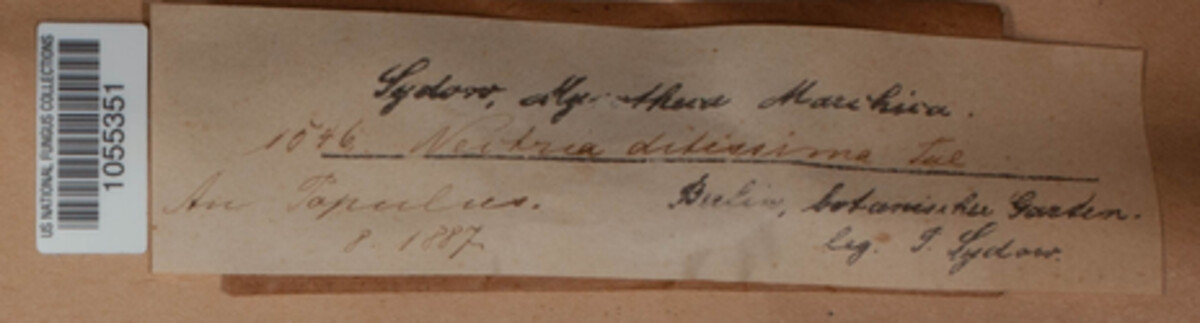 US NATIONAL FUNGUS COLLECTIONS
1055351
Sydow, Mycotheca Marchica.
1546. Nectria ditissima Tul
An Populus.
8. 1887
Berlin, botanischer Garten.
leg. P. Sydow.